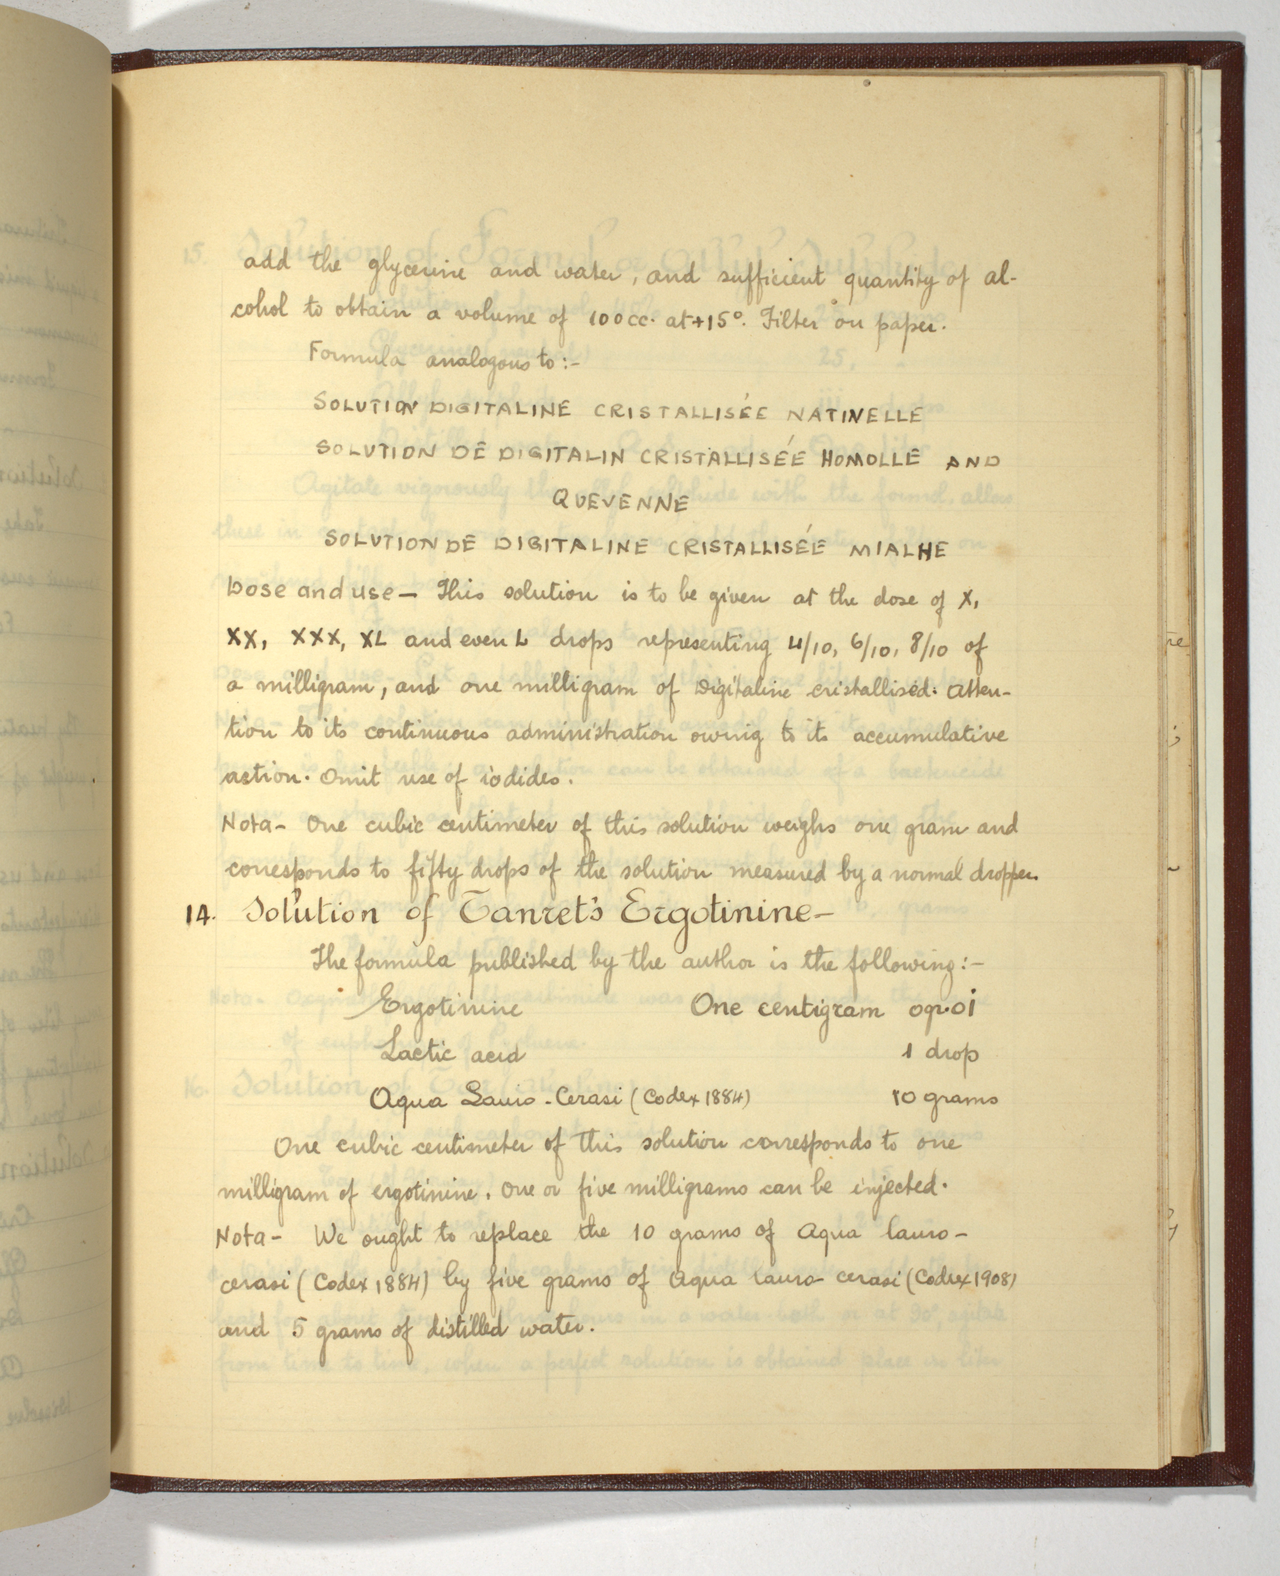 add the glycerine and water, and sufficient quantity of al-
cohol to obtain a volume of 100cc. at +15°. Filter on paper.
Formula analogous to:-
SOLUTION DIGITALINE CRISTALLISÉE NATINELLE
SOLUTION DE DIGITALIN CRISTALLISÉE HOMOLLE AND
QUEVENNE
SOLUTION DE DIGITALINE CRISTALLISÉE MIALHE
Dose and use— This solution is to be given at the dose of X,
XX, XXX, XL and even L drops representing 4/10, 6/10, 8/10 of
a milligram, and one milligram of Digitaline cristallised. Atten-
tion to its continuous administration owing to its accumulative
action. Omit use of iodides.
Nota- One cubic centimeter of this solution weighs one gram and
corresponds to fifty drops of the solution measured by a normal dropper.
14. Solution of Tanret's Ergotinine-
The formula published by the author is the following:-
Ergotinine One centigram ogr.01
Lactic acid 1 drop
Aqua Lauro-Cerasi (Codex 1884) 10 grams
One cubic centimeter of this solution corresponds to one
milligram of ergotinine. One or five milligrams can be injected.
Nota- We ought to replace the 10 grams of Aqua lauro-
cerasi (Codex 1884) by five grams of Aqua lauro-cerasi (Codex 1908)
and 5 grams of distilled water.